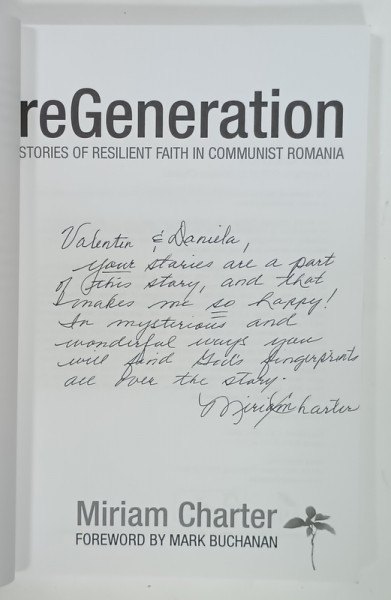 reGeneration
STORIES OF RESILIENT FAITH IN COMMUNIST ROMANIA
Valentin & Daniela,
your stories are a part
of this story, and that
makes me so happy!
In mysterious and
wonderful ways you
will find God's fingerprints
all over the story.
Miriam Charter
Miriam Charter
FOREWORD BY MARK BUCHANAN